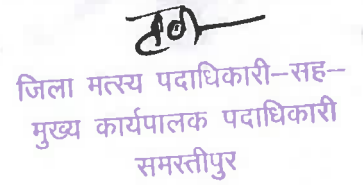 जिला मत्स्य पदाधिकारी–सह–
मुख्य कार्यपालक पदाधिकारी
समस्तीपुर